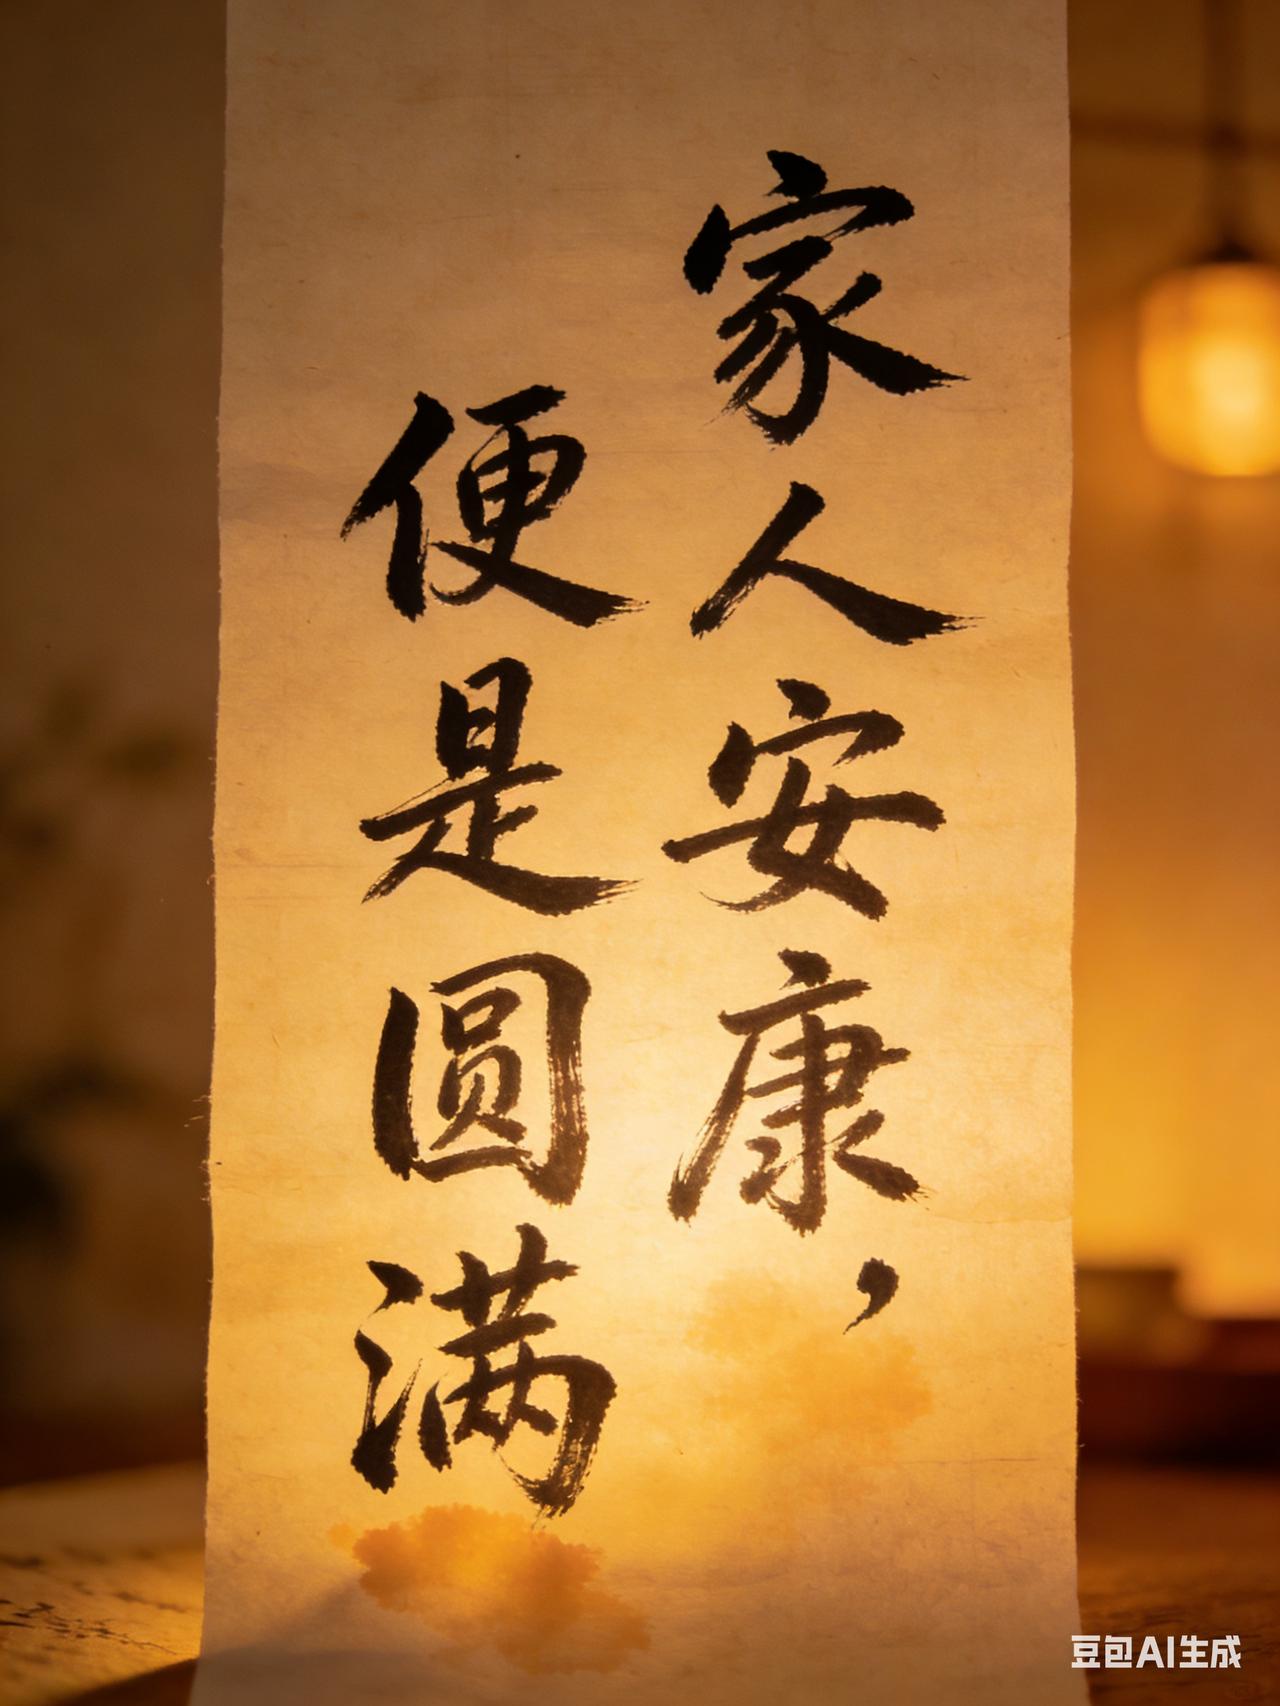 家人安康，
便是圆满
豆包AI生成